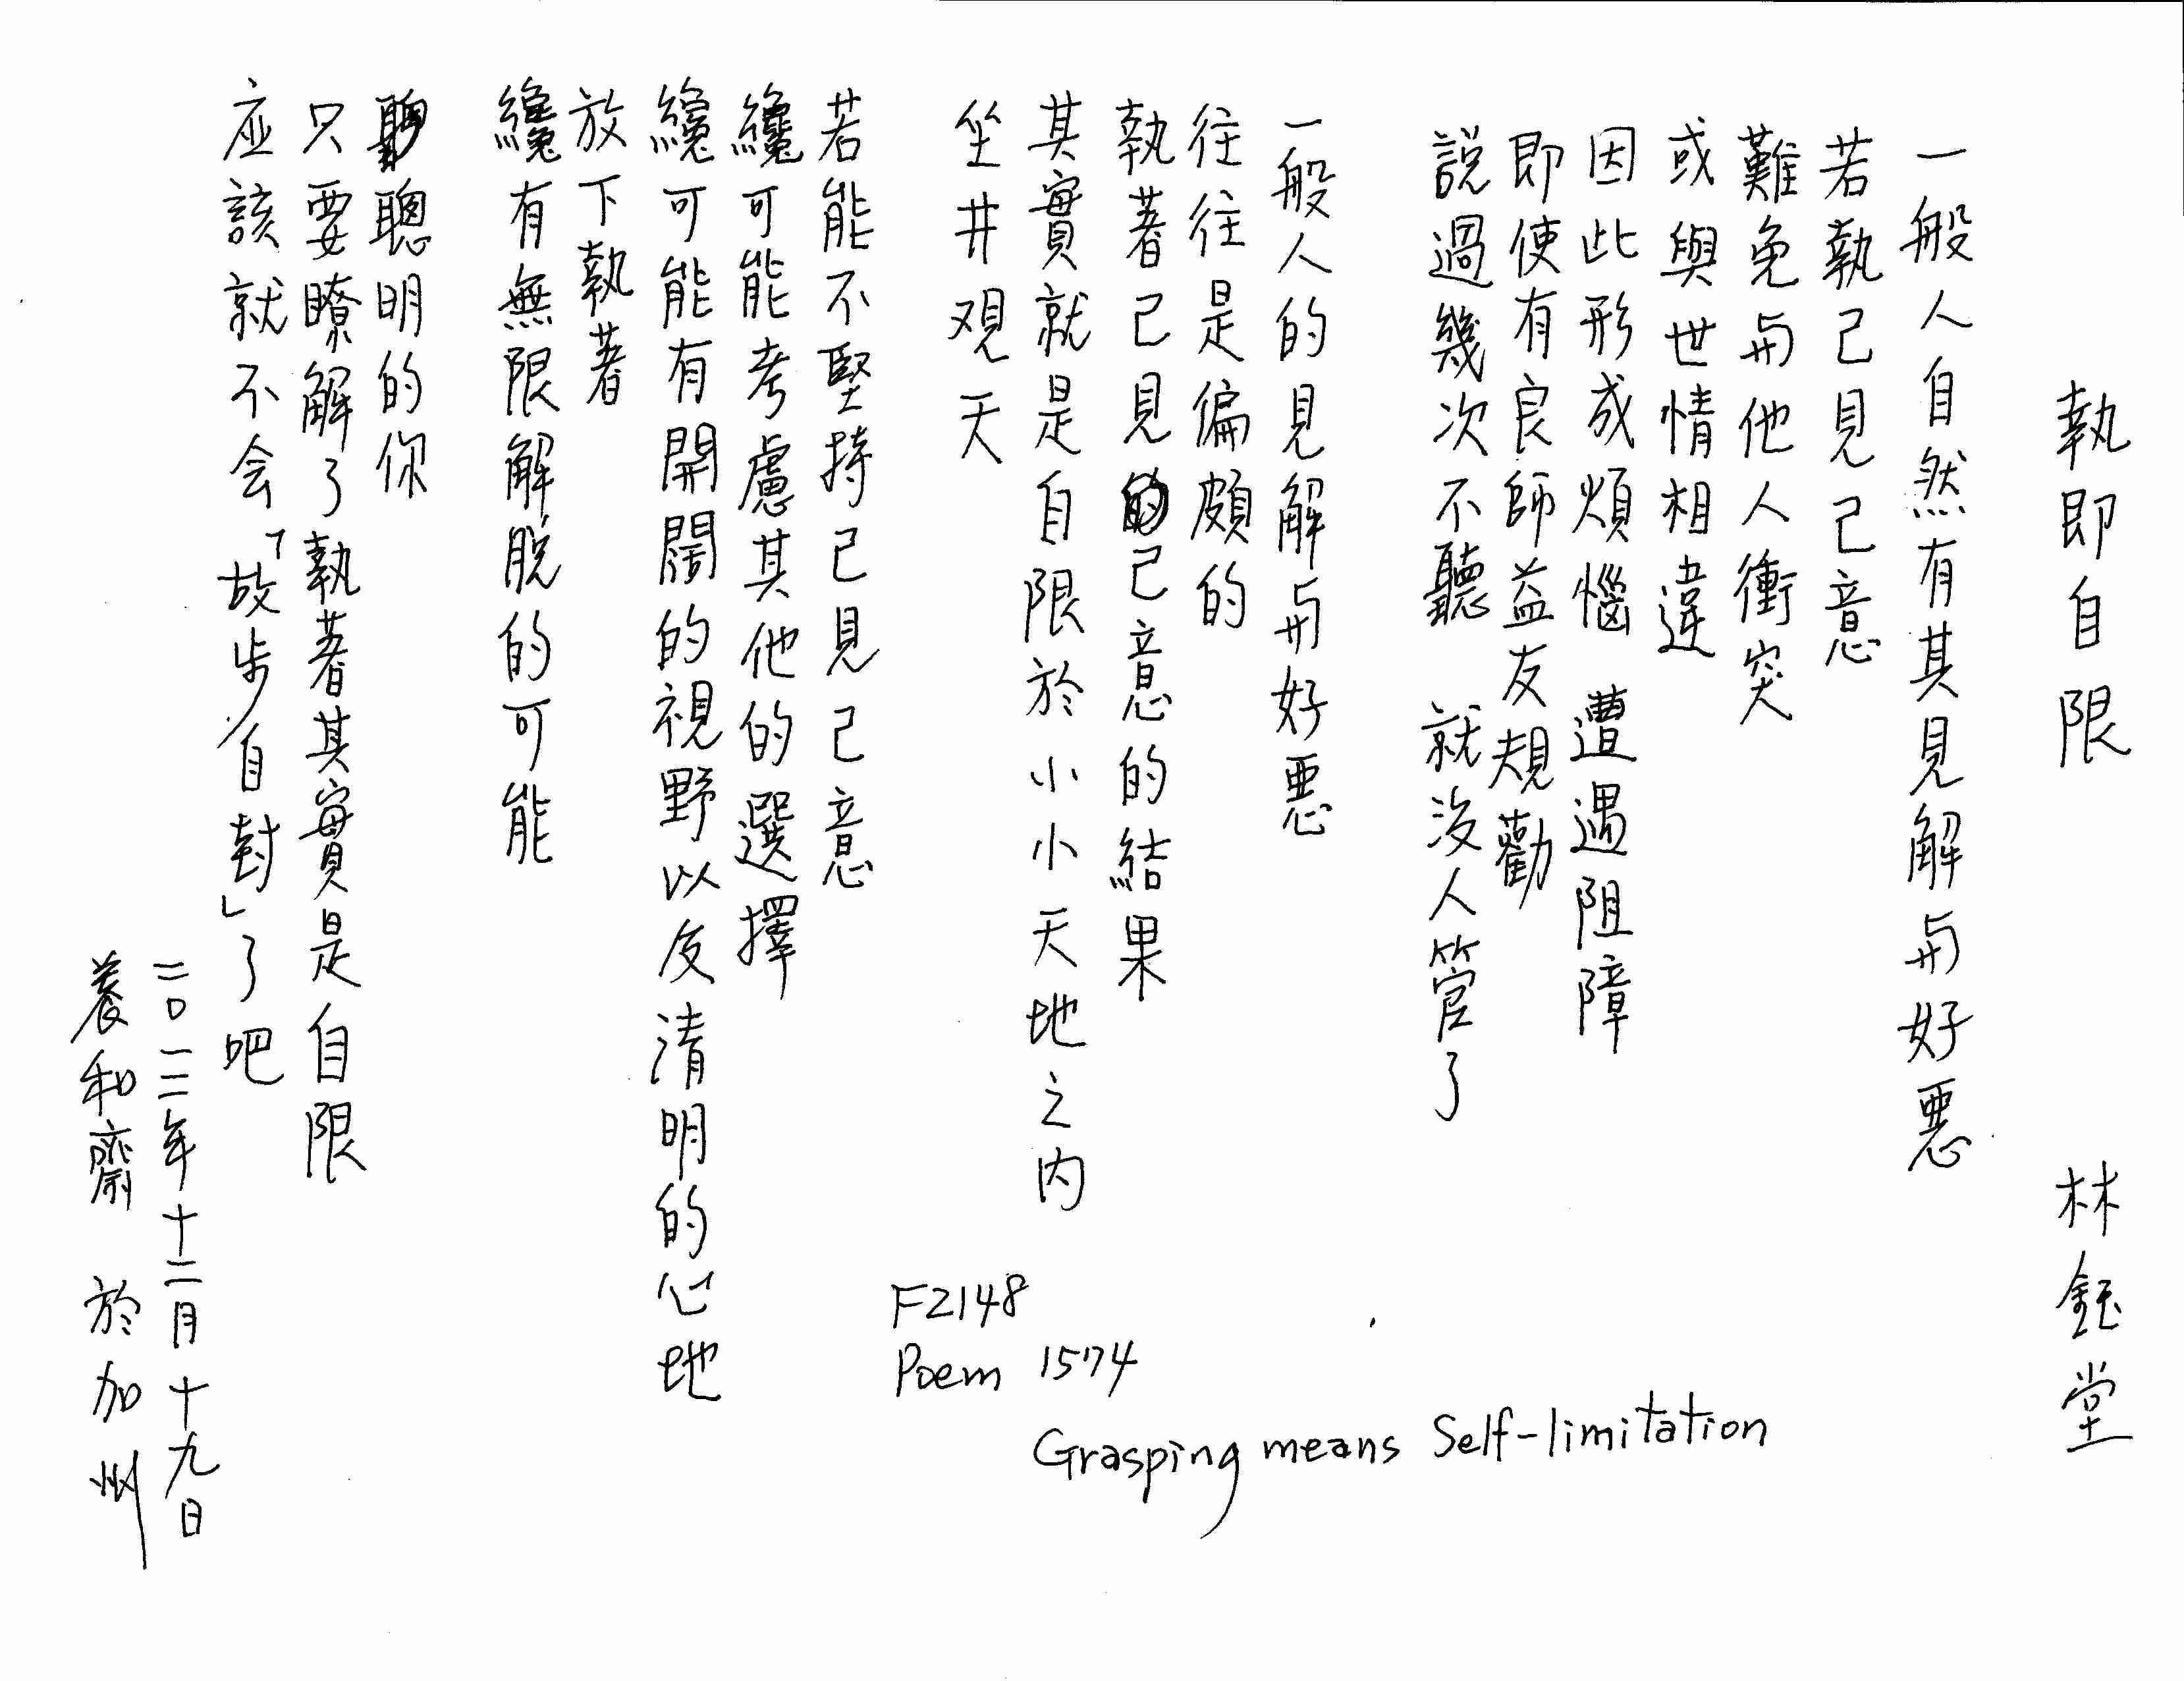 執即自限 林鈺堂
一般人自然有其見解与好惡
若執己見己意
難免与他人衝突
或與世情相違
因此形成煩惱 遭遇阻障
即使有良師益友規勸
說過幾次不聽 就沒人管了
一般人的見解与好惡
往往是偏頗的
執著己見己意的結果
其實就是自限於小小天地之内
坐井观天
若能不堅持己見己意
纔可能考慮其他的選擇
纔可能有開闊的視野以及清明的心地
放下執著
纔有無限解脫的可能
聰明的你
只要瞭解了執著其實是自限
应該就不会「故步自封」了吧
二〇一三年十二月十九日
養和齋 於加州
F2148
Poem 1574
Grasping means Self-limitation